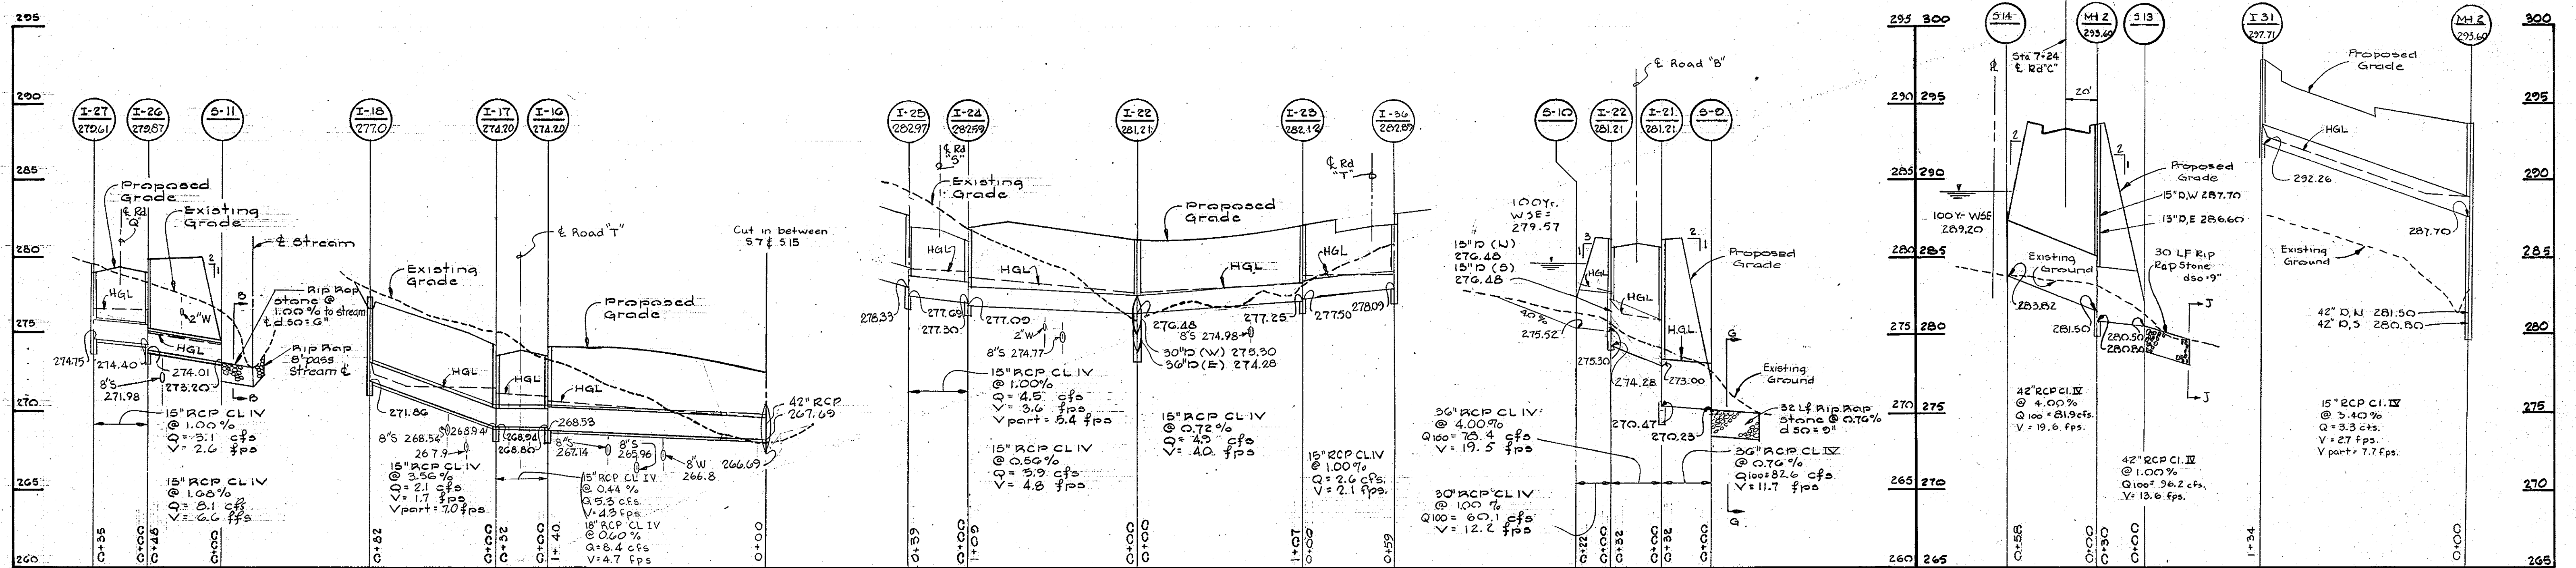 295
290
285
280
275
270
265
260
I-27
279.61
I-26
279.87
S-11
Proposed
Grade
℄ Rd
"Q"
Existing
Grade
℄ Stream
HGL
2
1
2"W
B
Rip Rap
stone @
1.00% to stream
℄ d50=6"
HGL
Rip Rap
8' pass
Stream ℄
B
274.75
274.40
274.01
273.20
8"S
271.98
15" RCP CL IV
@ 1.00%
V= 2.6 fps
15" RCP CL IV
@ 1.68%
Q= 8.1 cfs
V= 6.6 ffs
0+35
0+00
0+48
0+00
I-18
277.0
I-17
274.20
I-16
274.20
Existing
Grade
℄ Road "T"
Cut in between
S7 & S15
Proposed
Grade
HGL
HGL
HGL
271.86
8"S 268.54
268.94
267.9
268.94
268.80
268.53
8"S
267.14
8"S
265.96
8"W
266.8
42" RCP
267.69
266.69
15" RCP CL IV
@ 3.56%
Q= 2.1 cfs
V= 1.7 fps
Vpart= 7.0 fps
15" RCP CL IV
@ 0.44 %
Q 5.3 cfs.
V= 4.3 fps
18" RCP CL IV
@ 0.60 %
Q= 8.4 cfs
V= 4.7 fps
0+82
0+00
0+32
0+00
1+40
0+00
I-25
282.97
I-24
282.59
I-22
281.21
I-23
282.12
I-36
282.89
℄ Rd
"S"
℄ Rd
"T"
Existing
Grade
Proposed
Grade
HGL
HGL
HGL
HGL
278.33
277.69
277.30
277.09
2"W
8"S 274.77
276.48
8"S 274.98
30"D (W) 275.30
36"D (E) 274.28
277.25
277.50
278.09
15" RCP CL IV
@ 1.00%
Q= 4.5 cfs
V= 3.6 fps
Vpart= 5.4 fps
15" RCP CL IV
@ 0.56%
Q= 5.9 cfs
V= 4.8 fps
15" RCP CL IV
@ 0.72%
Q= 4.9 cfs
V= 4.0 fps
15" RCP CL IV
@ 1.00%
Q= 2.6 cfs.
V= 2.1 fps.
0+39
0+00
1+09
0+00
0+00
1+07
0+00
0+59
S-10
I-22
281.21
I-21
281.21
S-9
℄ Road "B"
100Yr.
WSE=
279.57
15"D (N)
276.48
15"D (S)
276.48
3
1
2
1
HGL
HGL
HGL
Proposed
Grade
275.52
275.30
274.28
273.00
G
Existing
Ground
270.47
270.23
32 Lf Rip Rap
stone @ 0.76%
d50=9"
36" RCP CL IV
@ 4.00%
Q100= 78.4 cfs
V= 19.5 fps
36" RCP CL IV
@ 0.76%
Q100=82.6 cfs
V=11.7 fps
30" RCP CL IV
@ 1.00 %
Q100= 60.1 cfs
V= 12.2 fps
G
0+22
0+00
0+32
0+00
0+32
0+00
295 300
290 295
285 290
280 285
275 280
270 275
265 270
260 265
S14
MH 2
293.60
S13
Sta 7+24
℄ Rd "C"
20'
2
1
2
1
Proposed
Grade
15"D,W 287.70
15"D,E 286.60
100Yr WSE
289.20
Existing
Ground
30 LF Rip
Rap Stone
d50=9"
J
J
283.82
281.50
280.50
280.80
42" RCP Cl. IV
@ 4.00%
Q100= 81.9cfs.
V= 19.6 fps.
42" RCP Cl. IV
@ 1.00%
Q100= 96.2 cfs.
V= 13.6 fps.
0+58
0+00
0+30
0+00
I 31
297.71
MH 2
293.60
Proposed
Grade
HGL
292.26
287.70
Existing
Ground
42" D,N 281.50
42" D,S 280.80
15" RCP Cl. IV
@ 3.40%
Q= 3.3 cfs.
V= 2.7 fps.
V part= 7.7 fps.
1+34
0+00
300
295
290
285
280
275
270
265